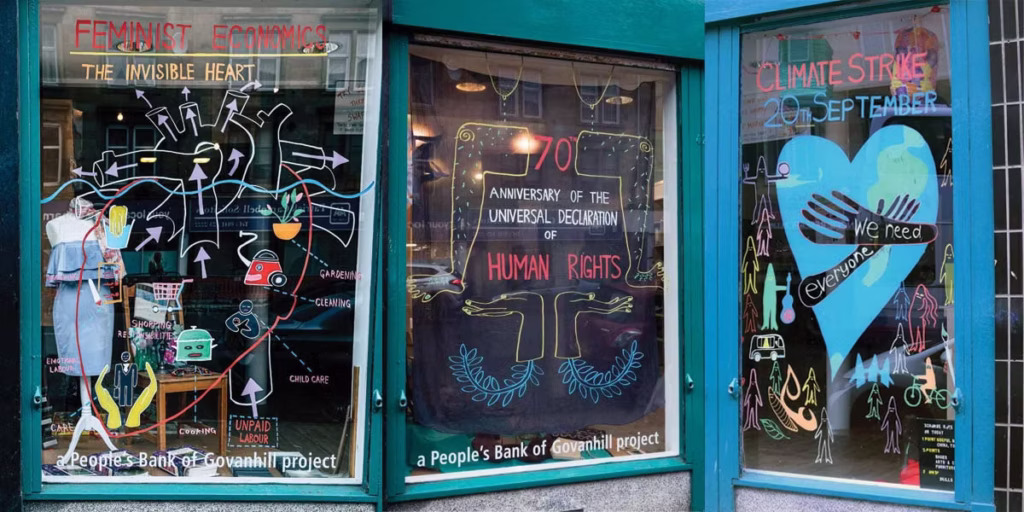 FEMINIST ECONOMICS
THE INVISIBLE HEART
GARDENING
CLEANING
SHOPPING
RESPONSIBILITIES
EMOTIONAL
LABOUR
CHILD CARE
CARE
COOKING
UNPAID
LABOUR
a People's Bank of Govanhill project
70
ANNIVERSARY OF THE
UNIVERSAL DECLARATION
OF
HUMAN RIGHTS
a People's Bank of Govanhill project
CLIMATE STRIKE
20TH SEPTEMBER
We need
everyone